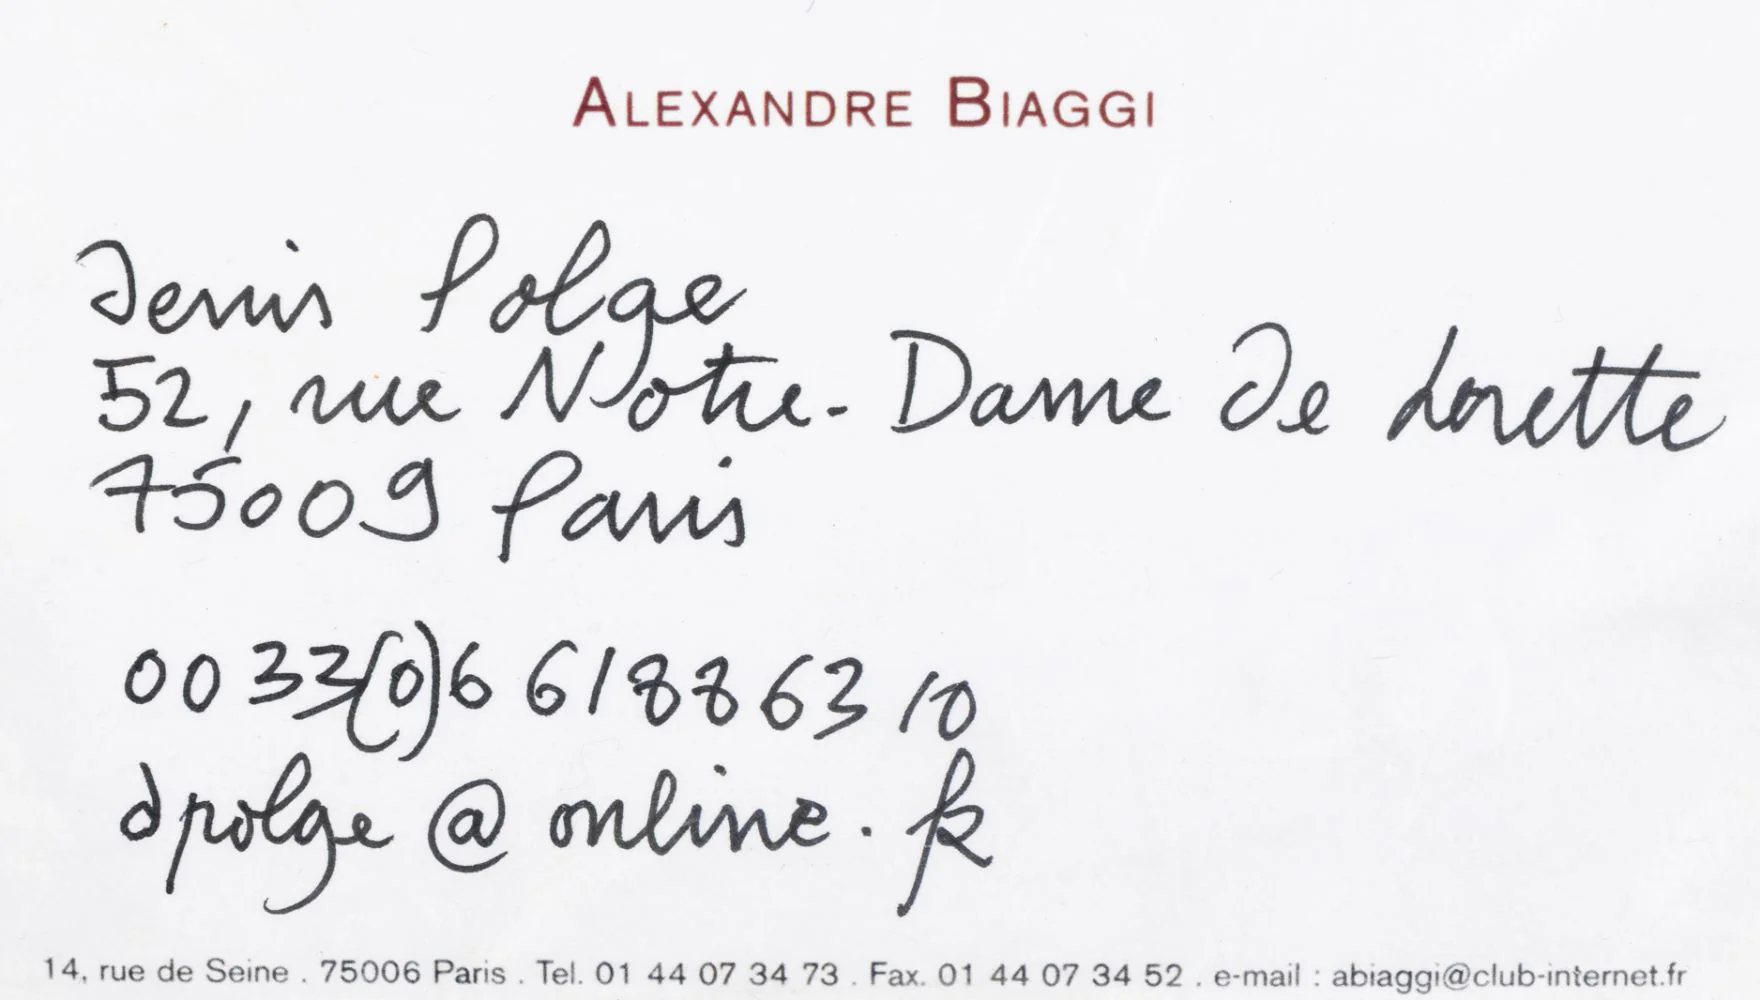 ALEXANDRE BIAGGI
Denis Polge
52, rue Notre-Dame de Lorette
75009 Paris
00 33(0)6 6188 63 10
dpolge@online.fr
14, rue de Seine . 75006 Paris . Tel. 01 44 07 34 73 . Fax. 01 44 07 34 52 . e-mail : abiaggi@club-internet.fr